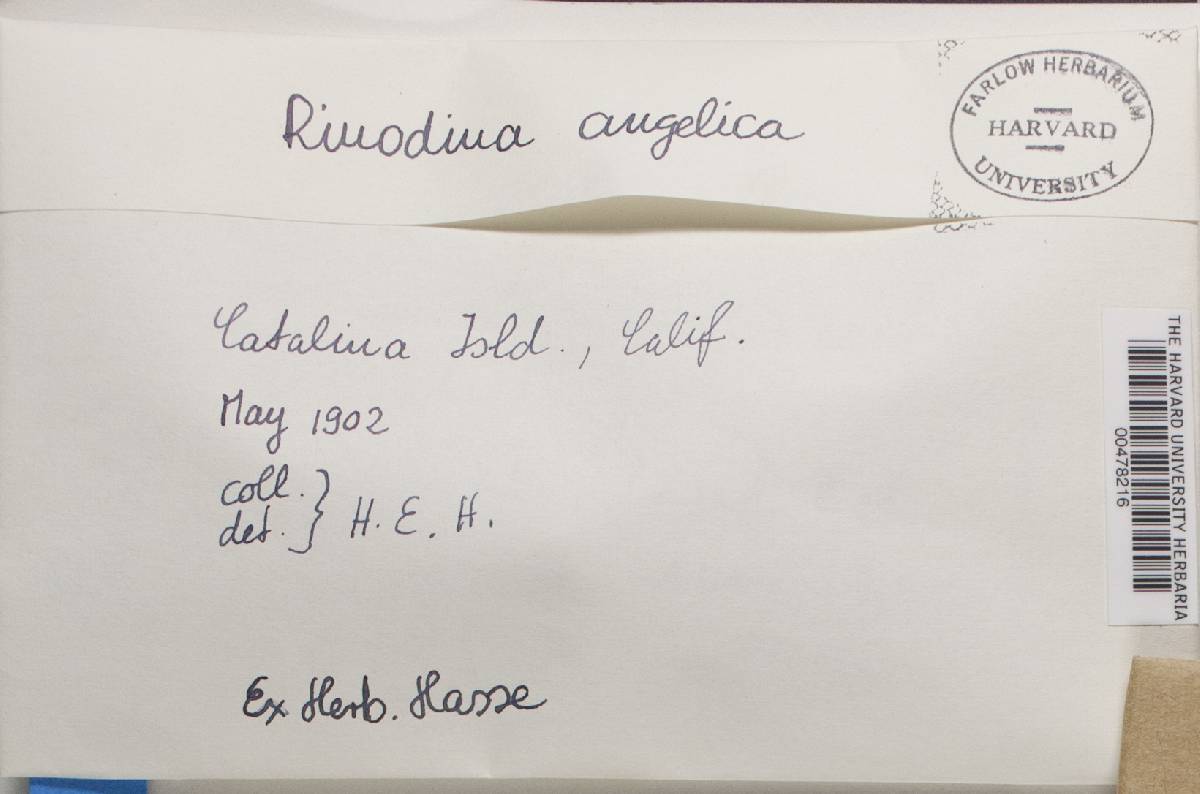 Rinodina angelica
FARLOW HERBARIUM
HARVARD
UNIVERSITY
Catalina Isld., Calif.
May 1902
coll.
det. } H. E. H.
Ex Herb. Hasse
THE HARVARD UNIVERSITY HERBARIA
00478216